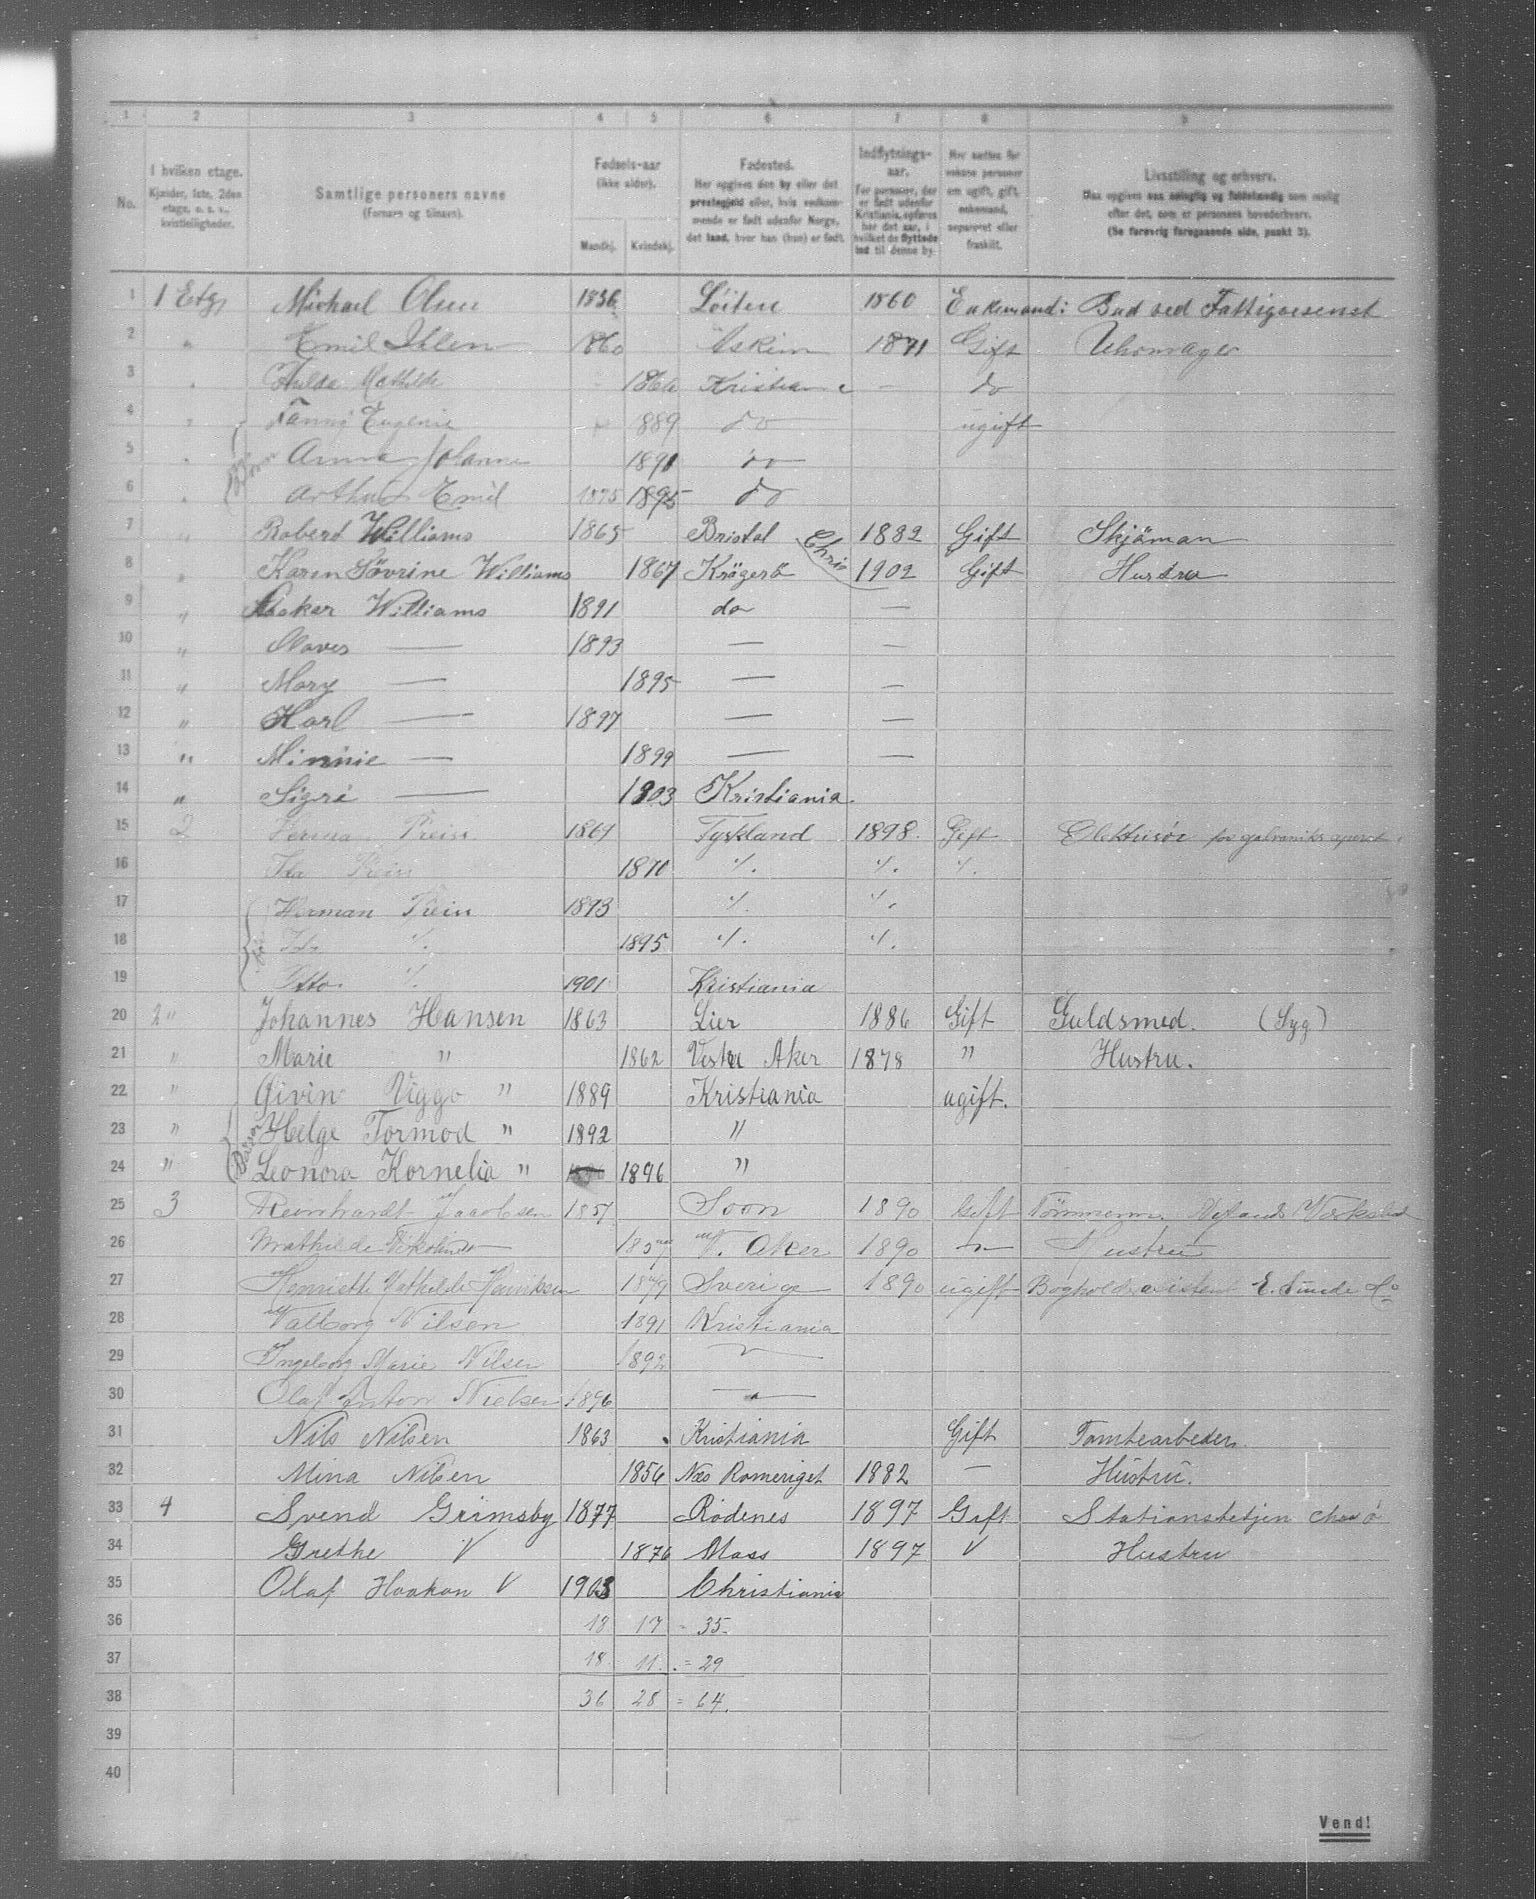 1 2 3 4 5 6 7 8 9
No. I hvilken etage. Kjælder, 1ste, 2den etage, o. s. v., kvistleiligheder. Samtlige personers navne (Fornavn og tilnavn). Fødsels-aar (ikke alder). Mandkj. Kvindekj. Fødested. Her opgives den by eller det prestegjeld eller, hvis vedkommende er født udenfor Norge, det land, hvor han (hun) er født. Indflytnings-aar. For personer, der er født udenfor Kristiania, opføres her det aar, i hvilket de flyttede ind til denne by. Her sættes for voksne personer om ugift, gift, enkemand, separeret eller fraskilt. Livsstilling og erhverv. Daa opgives saa nøiagtig og fuldstændig som mulig efter det, som er personens hovederhverv. (Se forøvrig foregaaende side, punkt 3).
1 1 Etg, Michael Olsen 1836 Löiten 1860 Enkemand: Bud ved Fattigvesenet
2 " Emil Ihlen 1860 Askim 1871 Gift Uhrmager
3 " Hulda Mathilde 1866 Kristiania — do
4 " Fanni Eugenie 1889 do ugift
5 " Anna Johanne 1891 do
6 " Arthur Emil 1895 do
7 " Robert Williams 1865 Bristol 1882 Gift Skjäman
8 " Karen Sövrine Williams 1867 Krägerö Chris 1902 Gift Hustru
9 " Williams 1891 do —
10 " — 1893 — —
11 " Mary — 1895 — —
12 " Karl — 1897 — —
13 " Minnie — 1899 — —
14 " Sigri — 1903 Kristiania.
15 2 Prein 1861 Tyskland 1898. Gift Elektrisör for galvaniks aparat
16 Ida Prein 1870 ". ". ".
17 Herman Prein 1893 ". ".
18 Ida ". 1895 ". ".
19 Otto ". 1901 Kristiania
20 2 " Johannes Hansen 1863 Lier 1886 Gift Guldsmed. (Syg)
21 " Marie " 1862 Vestre Aker 1878 " Hustru.
22 " Øivin Viggo " 1889 Kristiania ugift.
23 " Børn Helge Tormod " 1892 "
24 " Leonora Kornelia " 1896 "
25 3 Reinhardt Jacobsen 1857 Soon 1890 Gift Tömmerm. Nylands Værksted
26 Mathilde 1857 V. Aker 1890 " Hustru
27 Henriette Mathilde Henriksen 1879 Sverige 1890 ugift Bogholderasistent E. Sunde & Co
28 Valborg Nilsen 1891 Kristiania
29 Ingeborg Marie Nilsen 1892 "
30 Olaf Anton Nielsen 1896 "
31 Nils Nilsen 1863 Kristiania Gift Tomtearbeder.
32 Mina Nilsen 1856 Næs Romeriget 1882 — Hustru.
33 4 Svend Grimsby 1877 Rödenes 1897 Gift Stationsbetjen
34 Grethe V 1876 Moss 1897 V Hustru
35 Olaf Haakon V 1903 Christiania
36 18 17 = 35.
37 18 11. = 29
38 36 28 = 64.
39
40
Vend!